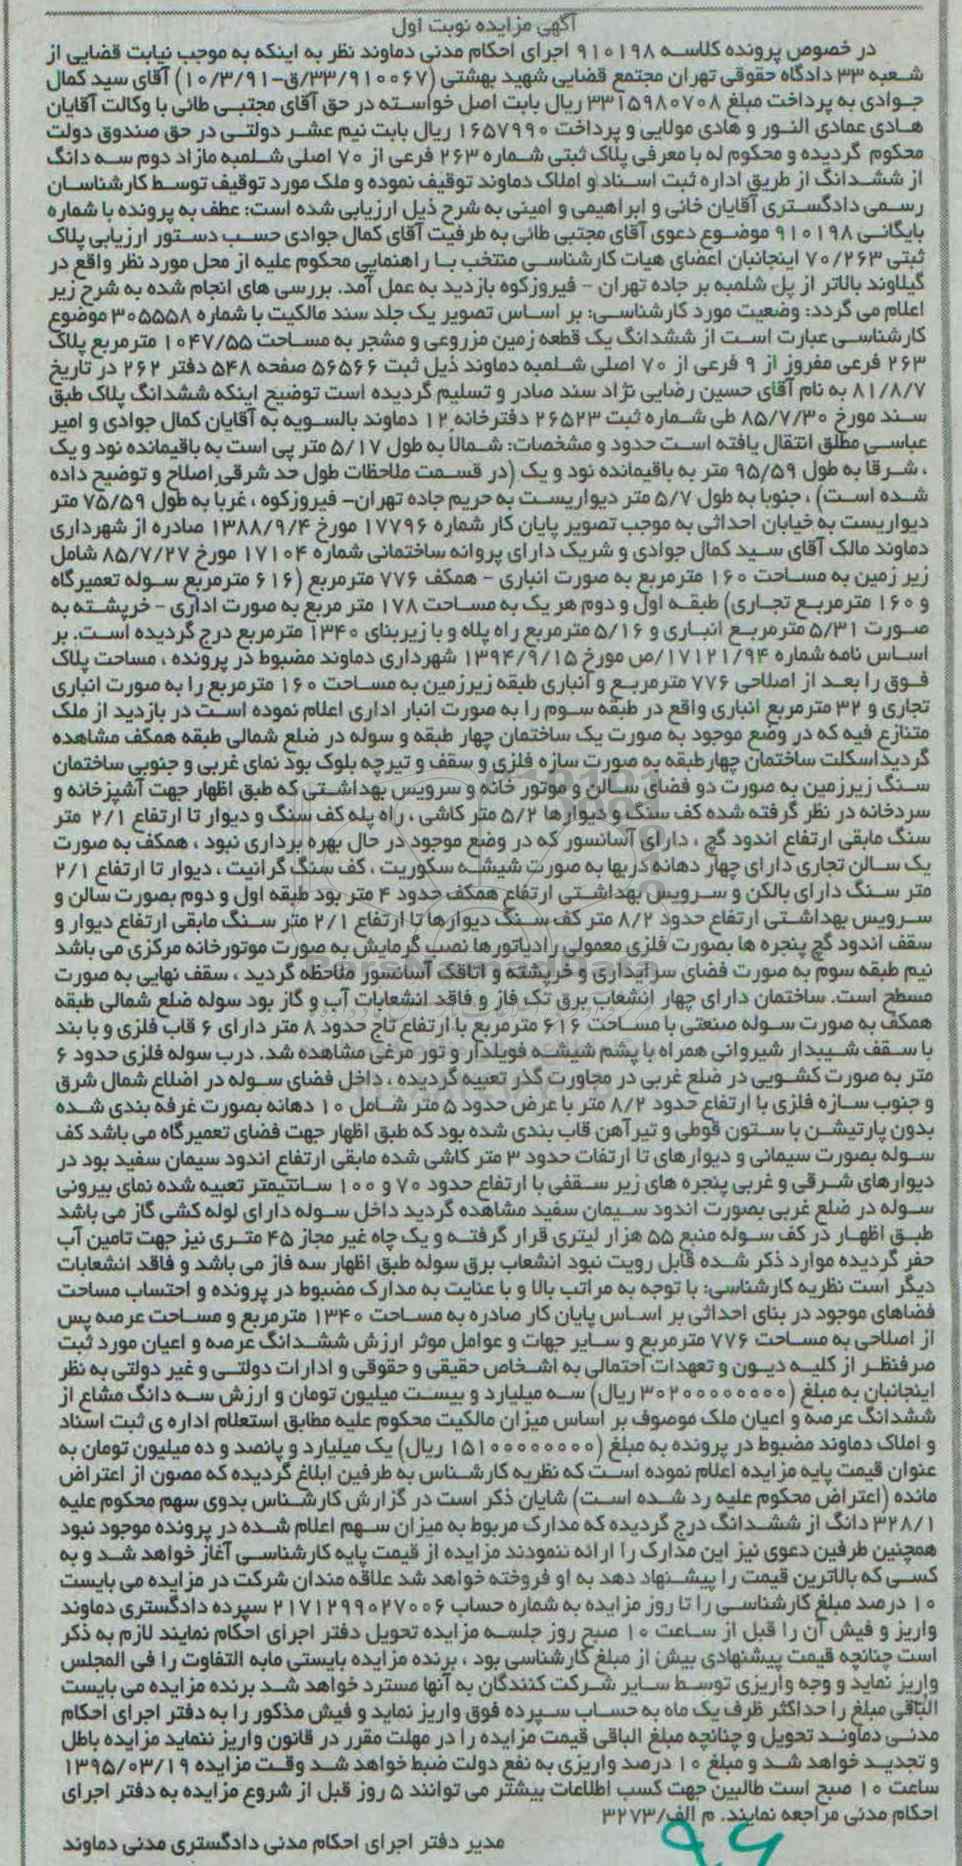 آگهی مزایده نوبت اول
در خصوص پرونده کلاسه ۹۱۰۱۹۸ اجرای احکام مدنی دماوند نظر به اینکه به موجب نیابت قضایی از
شعبه ۳۳ دادگاه حقوقی تهران مجتمع قضایی شهید بهشتی (۳۳/۹۱۰۰۶۷/ق-۱۰/۳/۹۱) آقای سید کمال
جوادی به پرداخت مبلغ ۳۳۱۵۹۸۰۷۰۸ ریال بابت اصل خواسته در حق آقای مجتبی طائی با وکالت آقایان
هادی عمادی النور و هادی مولایی و پرداخت ۱۶۵۷۹۹۰ ریال بابت نیم عشر دولتی در حق صندوق دولت
محکوم گردیده و محکوم له با معرفی پلاک ثبتی شماره ۲۶۳ فرعی از ۷۰ اصلی شلمبه مازاد دوم سه دانگ
از ششدانگ از طریق اداره ثبت اسناد و املاک دماوند توقیف نموده و ملک مورد توقیف توسط کارشناسان
رسمی دادگستری آقایان خانی و ابراهیمی و امینی به شرح ذیل ارزیابی شده است: عطف به پرونده با شماره
بایگانی ۹۱۰۱۹۸ موضوع دعوی آقای مجتبی طائی به طرفیت آقای کمال جوادی حسب دستور ارزیابی پلاک
ثبتی ۷۰/۲۶۳ اینجانبان اعضای هیات کارشناسی منتخب با راهنمایی محکوم علیه از محل مورد نظر واقع در
گیلاوند بالاتر از پل شلمبه بر جاده تهران - فیروزکوه بازدید به عمل آمد. بررسی های انجام شده به شرح زیر
اعلام می گردد: وضعیت مورد کارشناسی: بر اساس تصویر یک جلد سند مالکیت با شماره ۳۰۵۵۵۸ موضوع
کارشناسی عبارت است از ششدانگ یک قطعه زمین مزروعی و مشجر به مساحت ۱۰۴۷/۵۵ مترمربع پلاک
۲۶۳ فرعی مفروز از ۹ فرعی از ۷۰ اصلی شلمبه دماوند ذیل ثبت ۵۶۵۶۶ صفحه ۵۴۸ دفتر ۲۶۲ در تاریخ
۸۱/۸/۷ به نام آقای حسین رضایی نژاد سند صادر و تسلیم گردیده است توضیح اینکه ششدانگ پلاک طبق
سند مورخ ۸۵/۷/۳۰ طی شماره ثبت ۲۶۵۲۳ دفترخانه ۱۲ دماوند بالسویه به آقایان کمال جوادی و امیر
عباسی مطلق انتقال یافته است حدود و مشخصات: شمالا به طول ۵/۱۷ متر پی است به باقیمانده نود و یک
، شرقا به طول ۹۵/۵۹ متر به باقیمانده نود و یک (در قسمت ملاحظات طول حد شرقی اصلاح و توضیح داده
شده است) ، جنوبا به طول ۵/۷ متر دیواریست به حریم جاده تهران- فیروزکوه ، غربا به طول ۷۵/۵۹ متر
دیواریست به خیابان احداثی به موجب تصویر پایان کار شماره ۱۷۷۹۶ مورخ ۱۳۸۸/۹/۴ صادره از شهرداری
دماوند مالک آقای سید کمال جوادی و شریک دارای پروانه ساختمانی شماره ۱۷۱۰۴ مورخ ۸۵/۷/۲۷ شامل
زیر زمین به مساحت ۱۶۰ مترمربع به صورت انباری - همکف ۷۷۶ مترمربع (۶۱۶ مترمربع سوله تعمیرگاه
و ۱۶۰ مترمربع تجاری) طبقه اول و دوم هر یک به مساحت ۱۷۸ متر مربع به صورت اداری - خرپشته به
صورت ۵/۳۱ مترمربع انباری و ۵/۱۶ مترمربع راه پله و با زیربنای ۱۳۴۰ مترمربع درج گردیده است. بر
اساس نامه شماره ۱۷۱۲۱/۹۴/ص مورخ ۱۳۹۴/۹/۱۵ شهرداری دماوند مضبوط در پرونده ، مساحت پلاک
فوق را بعد از اصلاحی ۷۷۶ مترمربع و انباری طبقه زیرزمین به مساحت ۱۶۰ مترمربع را به صورت انباری
تجاری و ۳۲ مترمربع انباری واقع در طبقه سوم را به صورت انبار اداری اعلام نموده است در بازدید از ملک
متنازع فیه که در وضع موجود به صورت یک ساختمان چهار طبقه و سوله در ضلع شمالی طبقه همکف مشاهده
گردید اسکلت ساختمان چهارطبقه به صورت سازه فلزی و سقف و تیرچه بلوک بود نمای غربی و جنوبی ساختمان
سنگ زیرزمین به صورت دو فضای سالن و موتور خانه و سرویس بهداشتی که طبق اظهار جهت آشپزخانه و
سردخانه در نظر گرفته شده کف سنگ و دیوارها ۵/۲ متر کاشی ، راه پله کف سنگ و دیوار تا ارتفاع ۲/۱ متر
سنگ مابقی ارتفاع اندود گچ ، دارای آسانسور که در وضع موجود در حال بهره برداری نبود ، همکف به صورت
یک سالن تجاری دارای چهار دهانه دربها به صورت شیشه سکوریت ، کف سنگ گرانیت ، دیوار تا ارتفاع ۲/۱
متر سنگ دارای بالکن و سرویس بهداشتی ارتفاع همکف حدود ۴ متر بود طبقه اول و دوم بصورت سالن و
سرویس بهداشتی ارتفاع حدود ۸/۲ متر کف سنگ دیوارها تا ارتفاع ۲/۱ متر سنگ مابقی ارتفاع دیوار و
سقف اندود گچ پنجره ها بصورت فلزی معمولی رادیاتورها نصب گرمایش به صورت موتورخانه مرکزی می باشد
نیم طبقه سوم به صورت فضای سرایداری و خرپشته و اتاقک آسانسور ملاحظه گردید ، سقف نهایی به صورت
مسطح است. ساختمان دارای چهار انشعاب برق تک فاز و فاقد انشعابات آب و گاز بود سوله ضلع شمالی طبقه
همکف به صورت سوله صنعتی با مساحت ۶۱۶ مترمربع با ارتفاع تاج حدود ۸ متر دارای ۶ قاب فلزی و با بند
با سقف شیبدار شیروانی همراه با پشم شیشه فویلدار و تور مرغی مشاهده شد. درب سوله فلزی حدود ۶
متر به صورت کشویی در ضلع غربی در مجاورت گذر تعبیه گردیده ، داخل فضای سوله در اضلاع شمال شرق
و جنوب سازه فلزی با ارتفاع حدود ۸/۲ متر با عرض حدود ۵ متر شامل ۱۰ دهانه بصورت غرفه بندی شده
بدون پارتیشن با ستون قوطی و تیرآهن قاب بندی شده بود که طبق اظهار جهت فضای تعمیرگاه می باشد کف
سوله بصورت سیمانی و دیوارهای تا ارتفات حدود ۳ متر کاشی شده مابقی ارتفاع اندود سیمان سفید بود در
دیوارهای شرقی و غربی پنجره های زیر سقفی با ارتفاع حدود ۷۰ و ۱۰۰ سانتیمتر تعبیه شده نمای بیرونی
سوله در ضلع غربی بصورت اندود سیمان سفید مشاهده گردید داخل سوله دارای لوله کشی گاز می باشد
طبق اظهار در کف سوله منبع ۵۵ هزار لیتری قرار گرفته و یک چاه غیر مجاز ۴۵ متری نیز جهت تامین آب
حفر گردیده موارد ذکر شده قابل رویت نبود انشعاب برق سوله طبق اظهار سه فاز می باشد و فاقد انشعابات
دیگر است نظریه کارشناسی: با توجه به مراتب بالا و با عنایت به مدارک مضبوط در پرونده و احتساب مساحت
فضاهای موجود در بنای احداثی بر اساس پایان کار صادره به مساحت ۱۳۴۰ مترمربع و مساحت عرصه پس
از اصلاحی به مساحت ۷۷۶ مترمربع و سایر جهات و عوامل موثر ارزش ششدانگ عرصه و اعیان مورد ثبت
صرفنظر از کلیه دیون و تعهدات احتمالی به اشخاص حقیقی و حقوقی و ادارات دولتی و غیر دولتی به نظر
اینجانبان به مبلغ (۳۰۲۰۰۰۰۰۰۰۰ ریال) سه میلیارد و بیست میلیون تومان و ارزش سه دانگ مشاع از
ششدانگ عرصه و اعیان ملک موصوف بر اساس میزان مالکیت محکوم علیه مطابق استعلام اداره ی ثبت اسناد
و املاک دماوند مضبوط در پرونده به مبلغ (۱۵۱۰۰۰۰۰۰۰۰ ریال) یک میلیارد و پانصد و ده میلیون تومان به
عنوان قیمت پایه مزایده اعلام نموده است که نظریه کارشناس به طرفین ابلاغ گردیده که مصون از اعتراض
مانده (اعتراض محکوم علیه رد شده است) شایان ذکر است در گزارش کارشناس بدوی سهم محکوم علیه
۳۲۸/۱ دانگ از ششدانگ درج گردیده که مدارک مربوط به میزان سهم اعلام شده در پرونده موجود نبود
همچنین طرفین دعوی نیز این مدارک را ارائه ننمودند مزایده از قیمت پایه کارشناسی آغاز خواهد شد و به
کسی که بالاترین قیمت را پیشنهاد دهد به او فروخته خواهد شد علاقه مندان شرکت در مزایده می بایست
۱۰ درصد مبلغ کارشناسی را تا روز مزایده به شماره حساب ۲۱۷۱۲۹۹۰۲۷۰۰۶ سپرده دادگستری دماوند
واریز و فیش آن را قبل از ساعت ۱۰ صبح روز جلسه مزایده تحویل دفتر اجرای احکام نمایند لازم به ذکر
است چنانچه قیمت پیشنهادی بیش از مبلغ کارشناسی بود ، برنده مزایده بایستی مابه التفاوت را فی المجلس
واریز نماید و وجه واریزی توسط سایر شرکت کنندگان به آنها مسترد خواهد شد برنده مزایده می بایست
الباقی مبلغ را حداکثر ظرف یک ماه به حساب سپرده فوق واریز نماید و فیش مذکور را به دفتر اجرای احکام
مدنی دماوند تحویل و چنانچه مبلغ الباقی قیمت مزایده را در مهلت مقرر در قانون واریز ننماید مزایده باطل
و تجدید خواهد شد و مبلغ ۱۰ درصد واریزی به نفع دولت ضبط خواهد شد وقت مزایده ۱۳۹۵/۰۳/۱۹
ساعت ۱۰ صبح است طالبین جهت کسب اطلاعات بیشتر می توانند ۵ روز قبل از شروع مزایده به دفتر اجرای
احکام مدنی مراجعه نمایند. م الف/۳۲۷۳
مدیر دفتر اجرای احکام مدنی دادگستری مدنی دماوند